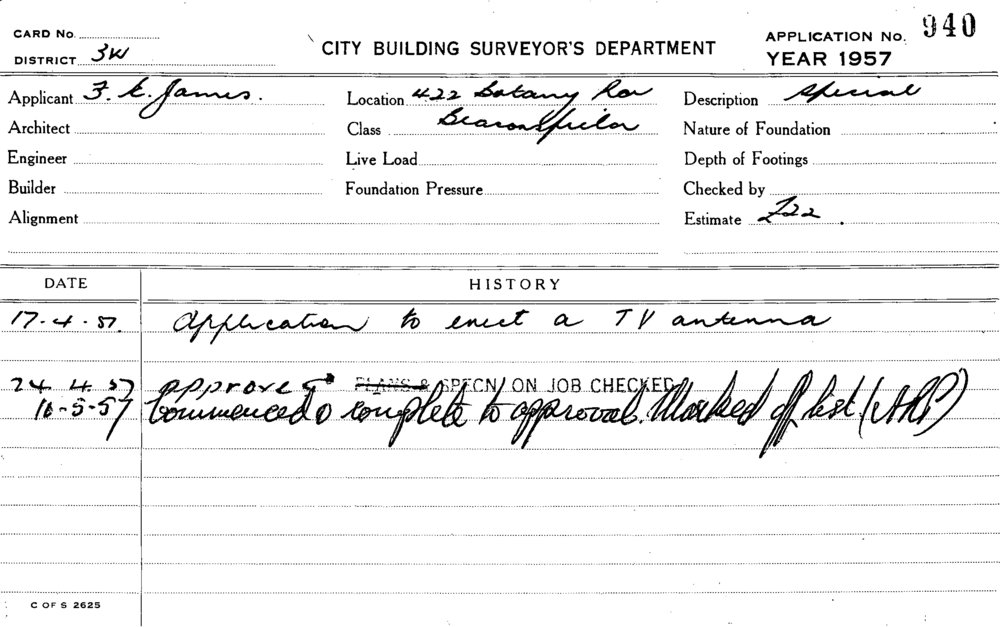 CARD No.
DISTRICT 3W
CITY BUILDING SURVEYOR'S DEPARTMENT
APPLICATION No. 940
YEAR 1957
Applicant F. E. James.
Location 422 Botany Rd
Description Special
Architect
Class Beaconsfield
Nature of Foundation
Engineer
Live Load
Depth of Footings
Builder
Foundation Pressure
Checked by
Alignment
Estimate £22.
DATE
HISTORY
17.4.57. Application to erect a TV antenna
24.4.57 approved PLANS & SPECN/ ON JOB CHECKED
16-5-57 Commenced & complete to approval. Marked off list.
C OF S 2625